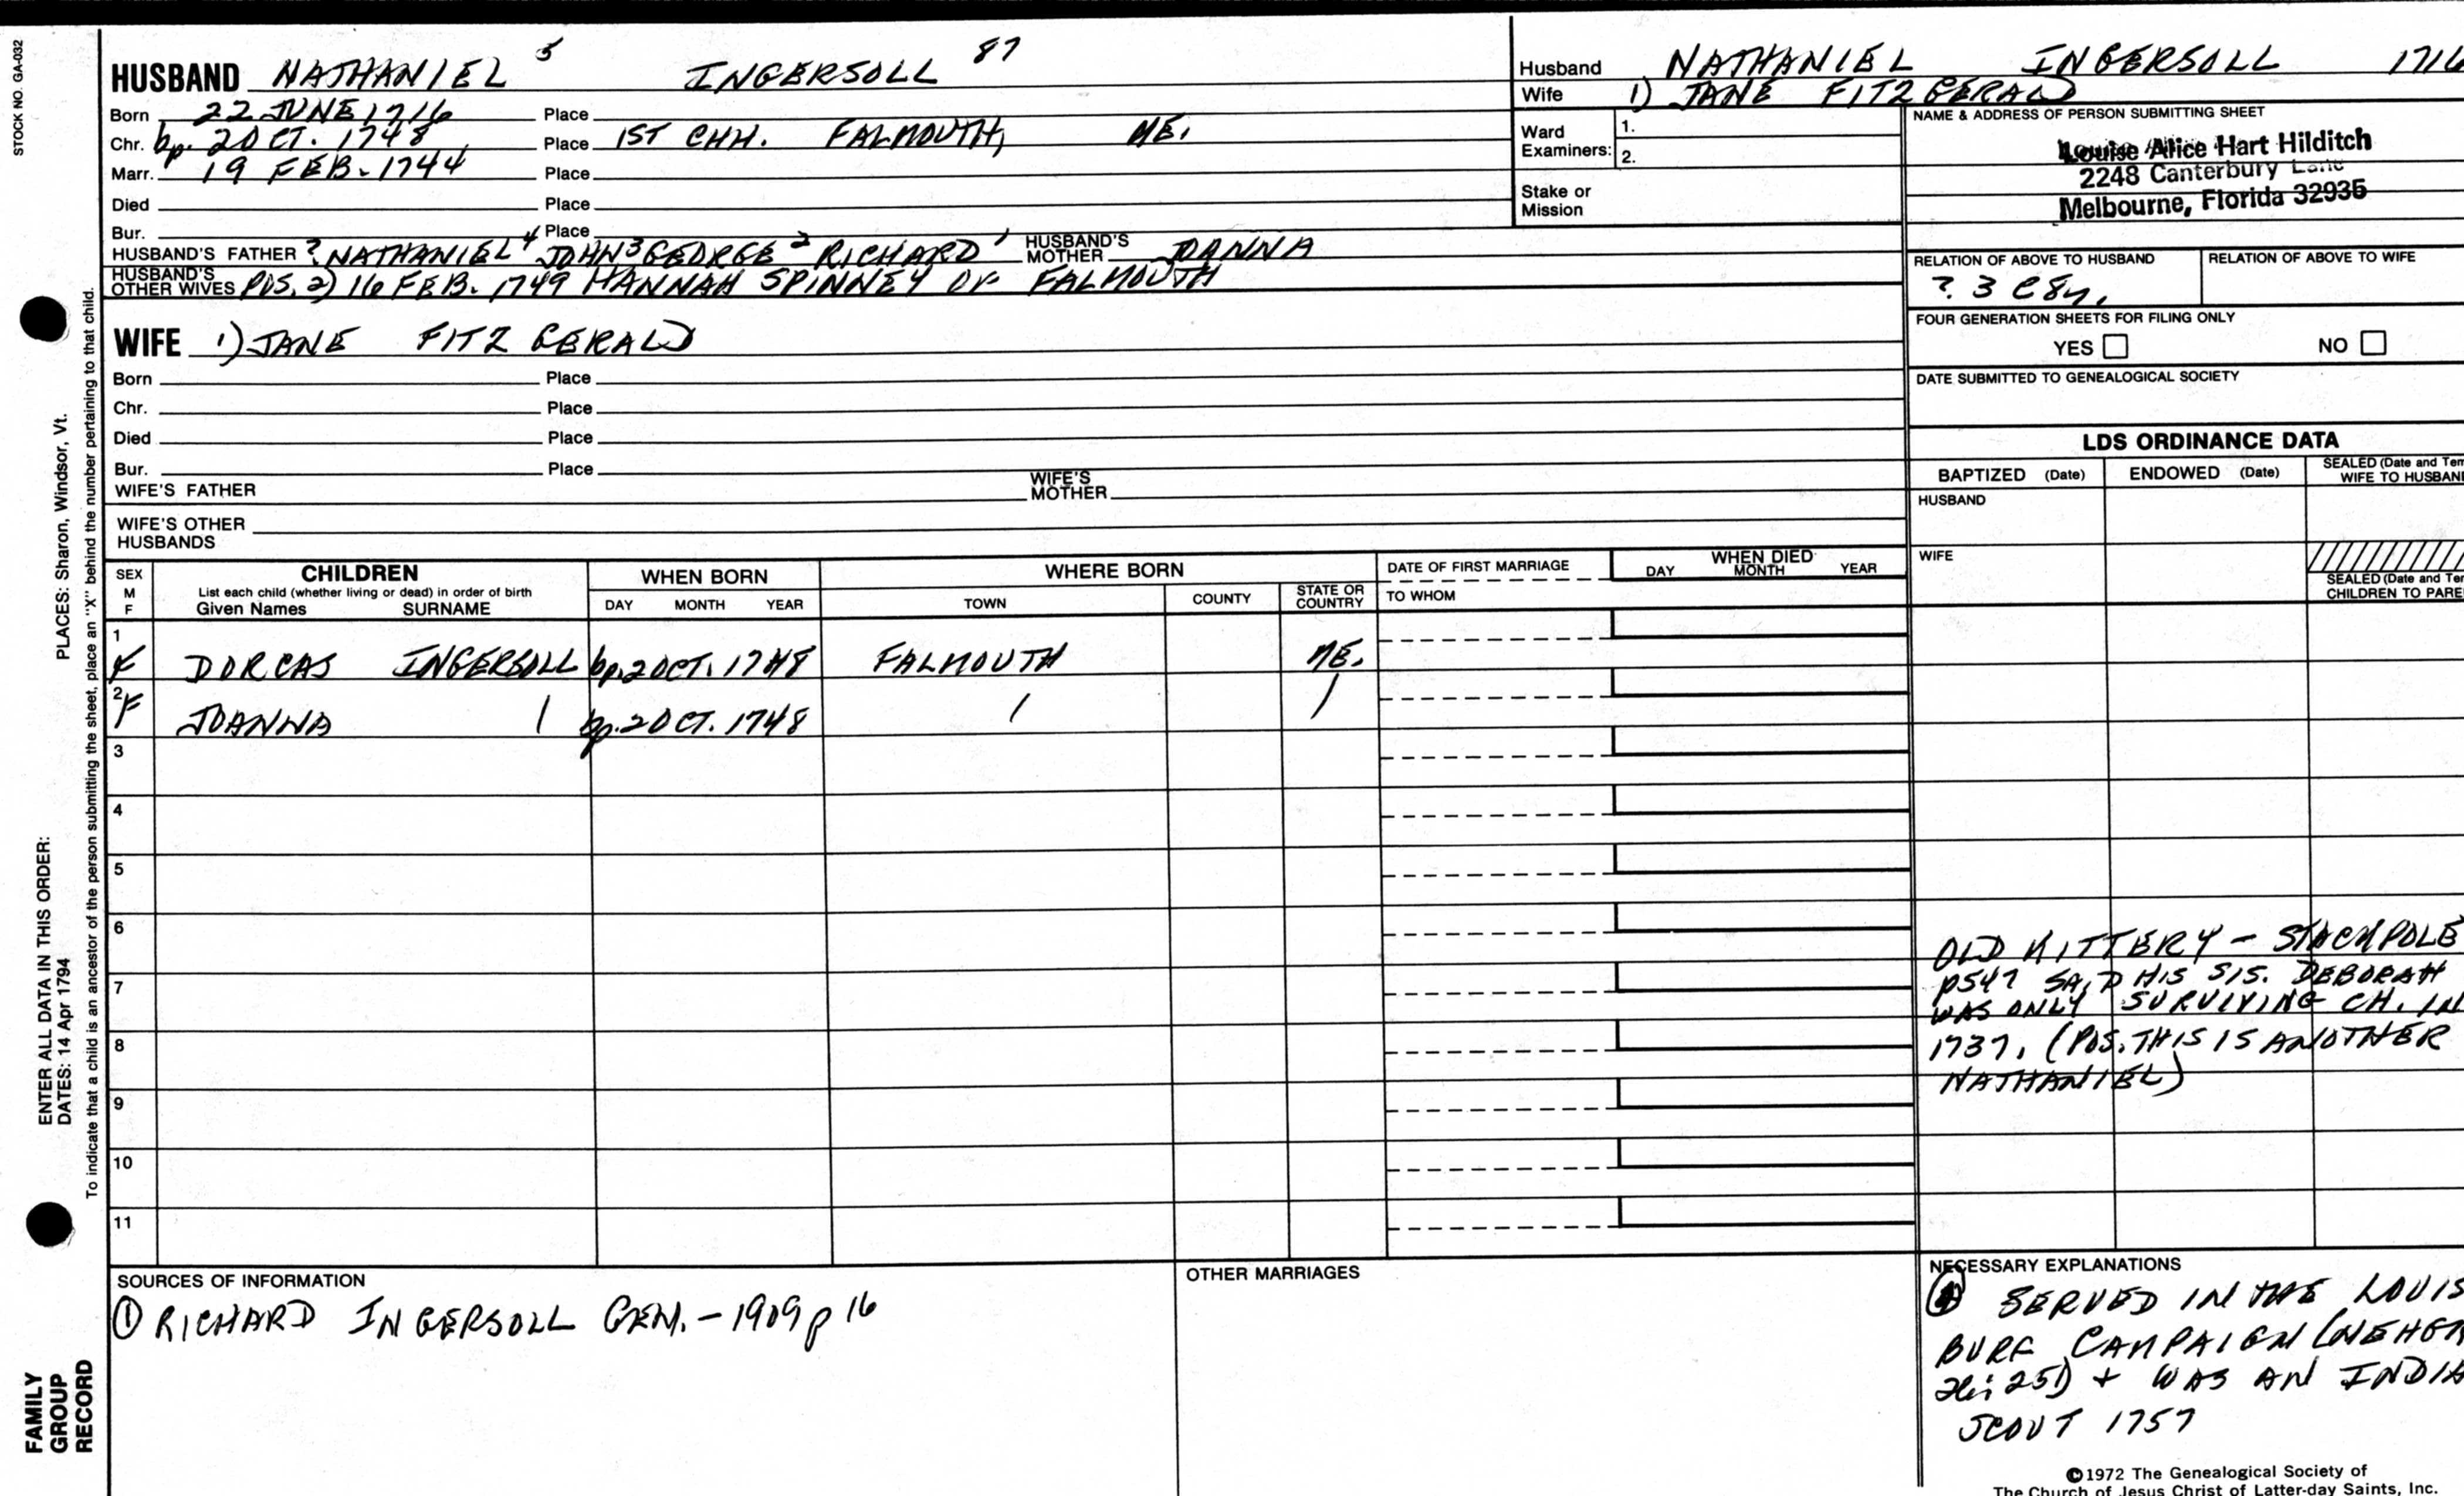 STOCK NO. GA-032
HUSBAND NATHANIEL 5 INGERSOLL 87
Born 22 JUNE 1716 Place
Chr. bp. 2 OCT. 1748 Place 1ST CHH. FALMOUTH, ME.
Marr. 19 FEB. 1744 Place
Died Place
Bur. Place
HUSBAND'S FATHER ? NATHANIEL 4 JOHN 3 GEORGE 2 RICHARD 1 HUSBAND'S MOTHER JOANNA
HUSBAND'S OTHER WIVES POS. 2) 16 FEB. 1749 HANNAH SPINNEY OF FALMOUTH
WIFE 1) JANE FITZ GERALD
Born Place
Chr. Place
Died Place
Bur. Place
WIFE'S FATHER WIFE'S MOTHER
WIFE'S OTHER HUSBANDS
Husband NATHANIEL INGERSOLL 1716
Wife 1) JANE FITZ GERALD
Ward Examiners: 1.
2.
Stake or Mission
NAME & ADDRESS OF PERSON SUBMITTING SHEET
Louise Alice Hart Hilditch
2248 Canterbury Lane
Melbourne, Florida 32935
RELATION OF ABOVE TO HUSBAND RELATION OF ABOVE TO WIFE
? 3
FOUR GENERATION SHEETS FOR FILING ONLY
YES NO
DATE SUBMITTED TO GENEALOGICAL SOCIETY
LDS ORDINANCE DATA
BAPTIZED (Date) ENDOWED (Date) SEALED (Date and Tem
WIFE TO HUSBAN
HUSBAND
WIFE
SEALED (Date and Te
CHILDREN TO PARE
SEX M F
CHILDREN
List each child (whether living or dead) in order of birth
Given Names SURNAME
WHEN BORN
DAY MONTH YEAR
WHERE BORN
TOWN COUNTY STATE OR COUNTRY
DATE OF FIRST MARRIAGE
TO WHOM
WHEN DIED
DAY MONTH YEAR
1 F DORCAS INGERSOLL bp. 2 OCT. 1748 FALMOUTH ME.
2 F JOANNA / bp. 2 OCT. 1748 / /
3
4
5
6
7
8
9
10
11
OLD KITTERY - STACKPOLE
p547 SAID HIS SIS. DEBORAH
WAS ONLY SURVIVING CH. IN
1737. (POS. THIS IS ANOTHER
NATHANIEL)
SOURCES OF INFORMATION
① RICHARD INGERSOLL GEN. - 1909 p 16
OTHER MARRIAGES
NECESSARY EXPLANATIONS
SERVED IN THE LOUIS
BURG CAMPAIGN (NEHGR
251) + WAS AN INDIA
SCOUT 1757
©1972 The Genealogical Society of
The Church of Jesus Christ of Latter-day Saints, Inc.
PLACES: Sharon, Windsor, Vt.
To indicate that a child is an ancestor of the person submitting the sheet, place an "X" behind the number pertaining to that child.
ENTER ALL DATA IN THIS ORDER:
DATES: 14 Apr 1794
FAMILY
GROUP
RECORD